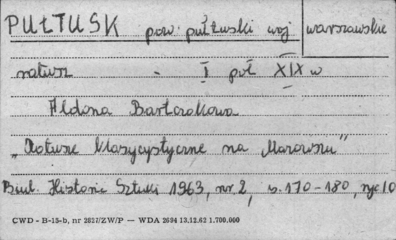 PUŁTUSK pow. pułtuski woj warszawskie
ratusz - I poł XIX w
Aldona Bartczakowa
„Ratusze klasycystyczne na Mazowszu"
Biul. Historii Sztuki 1963, nr. 2, s. 170-180, ryc 10
CWD - B-15-b, nr 2827/ZW/P — WDA 2694 13.12.62 1.700.000